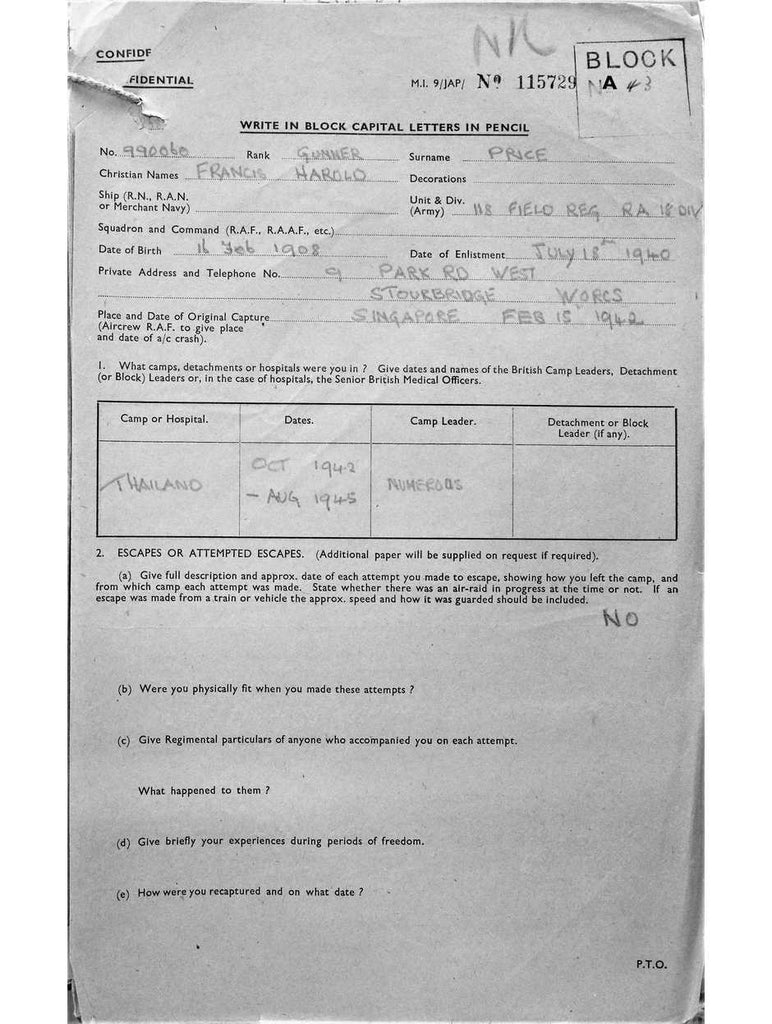 NR
CONFIDE
FIDENTIAL
M.I. 9/JAP/ Nº 115729
BLOCK
A 43
WRITE IN BLOCK CAPITAL LETTERS IN PENCIL
No. 990060 Rank GUNNER Surname PRICE
Christian Names FRANCIS HAROLD Decorations
Ship (R.N., R.A.N. or Merchant Navy) Unit & Div. (Army) 118 FIELD REG RA 18 DIV
Squadron and Command (R.A.F., R.A.A.F., etc.)
Date of Birth 16 Feb 1908 Date of Enlistment JULY 18th 1940
Private Address and Telephone No. 9 PARK RD WEST
STOURBRIDGE WORCS
Place and Date of Original Capture SINGAPORE FEB 15 1942
(Aircrew R.A.F. to give place
and date of a/c crash).
1. What camps, detachments or hospitals were you in ? Give dates and names of the British Camp Leaders, Detachment
(or Block) Leaders or, in the case of hospitals, the Senior British Medical Officers.
Camp or Hospital. Dates. Camp Leader. Detachment or Block
Leader (if any).
THAILAND OCT 1942 NUMEROUS
- AUG 1945
2. ESCAPES OR ATTEMPTED ESCAPES. (Additional paper will be supplied on request if required).
(a) Give full description and approx. date of each attempt you made to escape, showing how you left the camp, and
from which camp each attempt was made. State whether there was an air-raid in progress at the time or not. If an
escape was made from a train or vehicle the approx. speed and how it was guarded should be included.
NO
(b) Were you physically fit when you made these attempts ?
(c) Give Regimental particulars of anyone who accompanied you on each attempt.
What happened to them ?
(d) Give briefly your experiences during periods of freedom.
(e) How were you recaptured and on what date ?
P.T.O.